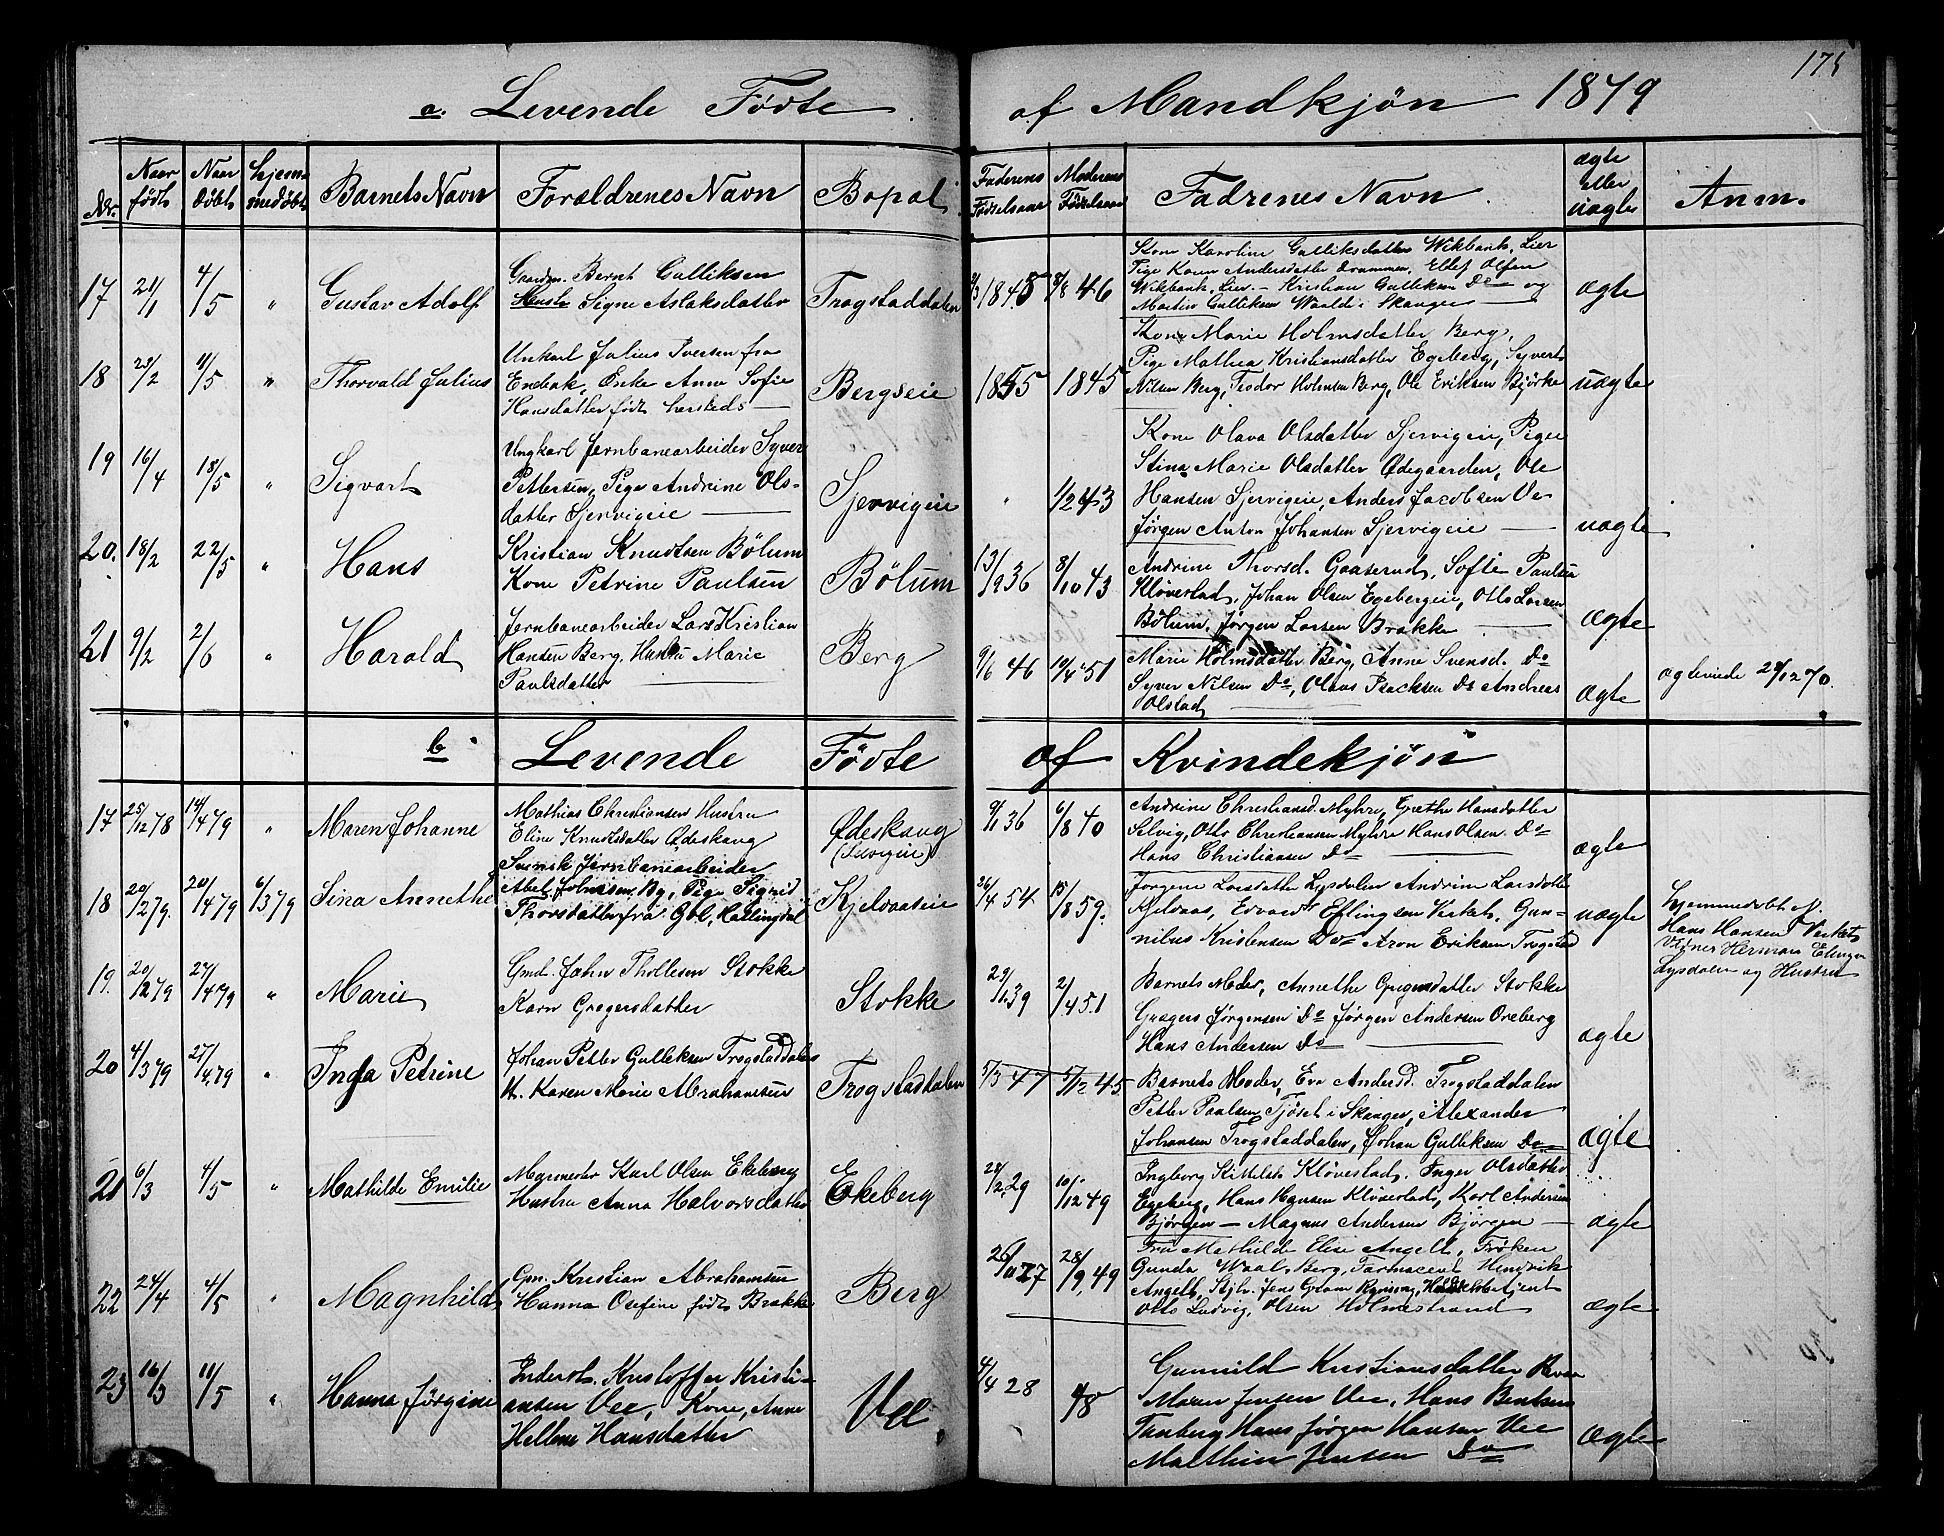 175
a. Levende Fødte af Mandkjøn 1879
No. Naar født Naar døbt Hjemmedøbt Barnets Navn Forældrenes Navn Bopæl Faderens Fødselsaar Moderens Fødselsaar Fadrenes Navn ægte eller uægte Anm.
17 21/1 4/5 " Gustav Adolf
Gaardm. Bernt Gulliksen
Hustr Signe Aslaksdatter
Trogstaddalen
1845 8/8 46
Kone Karoline Gulliksdatter Wikbank, Lier
Pige Karen Andersdatter Drammen, Ellef Olsen
Wikbank, Lier. – Kristian Gulliksen Do og
Martin Gulliksen Waale i Skauger
ægte
18 23/2 11/5 " Thorvald Julius
Unkarl Julius Iversen fra
Enebak, Enke Anne Sofie
Hansdatter født hersteds
Bergseie
1855 1845
Kone Marie Holmsdatter Berg,
Pige Mathea Kristiansdatter Egeberg, Syvert
Nilsen Berg, Teodor Holmsen Berg, Ole Eriksen Bjørke
uægte
19 16/4 18/5 " Sigvart
Ungkarl Jernbanearbeider Syver
Pettersen, Pige Andrine Ols-
datter Sjervigeie
Sjervigeie
" 1/2 43
Kone Olava Olsdatter Sjervigeie, Pige
Stina Marie Olsdatter Ødegaarden, Ole
Hansen Sjervigeie, Anders Jacobsen Ve
Jørgen Anton Johansen Sjervigeie
uægte
20. 18/2 22/5 " Hans
Kristian Knudtsen Bölum
Kone Petrine Paulsen
Bölum
13/9 36 8/10 43
Andrine Thorsd. Gaaserud, Sofie Paulsen
Kløverstad, Johan Olsen Egebergeie, Otto Larsen
Bölum, Jørgen Larsen Brække
ægte
21 9/2 2/6 " Harald
Jernbanearbeider Lars Kristian
Hansen Berg, Hustru Marie
Paulsdatter
Berg
9/6 46 10/4 51
Marie Holmsdatter Berg, Anne Svensd. Do
Syver Nilsen Do, Olaus Isacksen Do Andreas
Olstad
ægte
b Levende Fødte af Kvindekjön
17 25/12 78 14/4 79 " Maren Johanne
Mathias Christiansen Hustru
Eline Knudsdatter Ødeskaug
Ødeskaug
9/11 36 6/8 40
Andrine Christiansd. Myhre, Grethe Hansdatter
Selvig, Otto Christiansen Myhre Hans Olsen Do
Hans Christiansen Do
ægte
18 20/2 79. 20/4 79 6/3 79 Sina Annethe
Svensk Jernbanearbeider
Abel Johnsen, Pige Sigrid
Thorsdatter fra Gol, Hallingdal
Kjelaaseie
26/4 54 15/8 59.
Jørgene Larsdatter Lysdalen Andrine Larsdatter
Kjelaas, Edvard Eflingsen Verket, Gun-
nilus Kristensen Do Aron Eriksen Trogstad
uægte
Hjemmedøbt af
Hans Hansen Verket
Vidner Herman Elinger
Lysdalen og Hustru
19. 20/2 79 27/4 79 " Marie
Gmd. John Thollesen Stokke
Karn Gregersdatter
Stokke
29/11 39 2/4 51
Barnets Moder, Annethe Gregersdatter Stokke
Gregers Jørgensen Do Jørgen Andersen Oreberg
Hans Andersen Do
ægte
20 4/3 79 27/4 79 " Inga Petrine
Johan Petter Gulleksen Trogstaddalen
H. Karen Marie Abrahamsen
Trogstadtalen
5/3 47 5/12 45
Barnets Moder, Eva Andersd. Trogstaddalen
Petter Paulsen Tjøset i Skauger, Alexander
Johansen Trogstaddalen, Johan Gulliksen Do
ægte
21 6/3 4/5 " Mathilde Emilie
Murmester Karl Olsen Ekeberg
Hustru Anna Halvorsdatter
Ekeberg
28/2 29 10/12 49
Ingborg Kittelsd. Kløvestad, Inger Olsdatter
Egeberg, Hans Hansen Kløverstad, Karl Andersen
Bjørgen – Magnus Andersen Bjørgen
ægte
22 24/4 4/5 " Magnhild
Gm. Kristian Abrahamsen
Hanna Osefine født Brække
Berg
26/10 27 28/9 49
Fru Mathilde Elise Angell, Frøken
Gunda Waal, Berg, Farmaceut Hendrik
Angell, Jens Gram Agent
Otto Ludvig Olsen Holmestrand
ægte
23 16/3 11/5 " Hanna Jørgine
Inderst. Kristoffer Kristi-
ansen Vee, Kone, Anne
Hellene Hansdatter
Vee
4/4 28 48
Gunnild Kristiansdatter
Maren Jensen Vee, Hans Bentsen
Tanberg Hans Jørgen Hansen Vee
Mathias Jensen Do
ægte